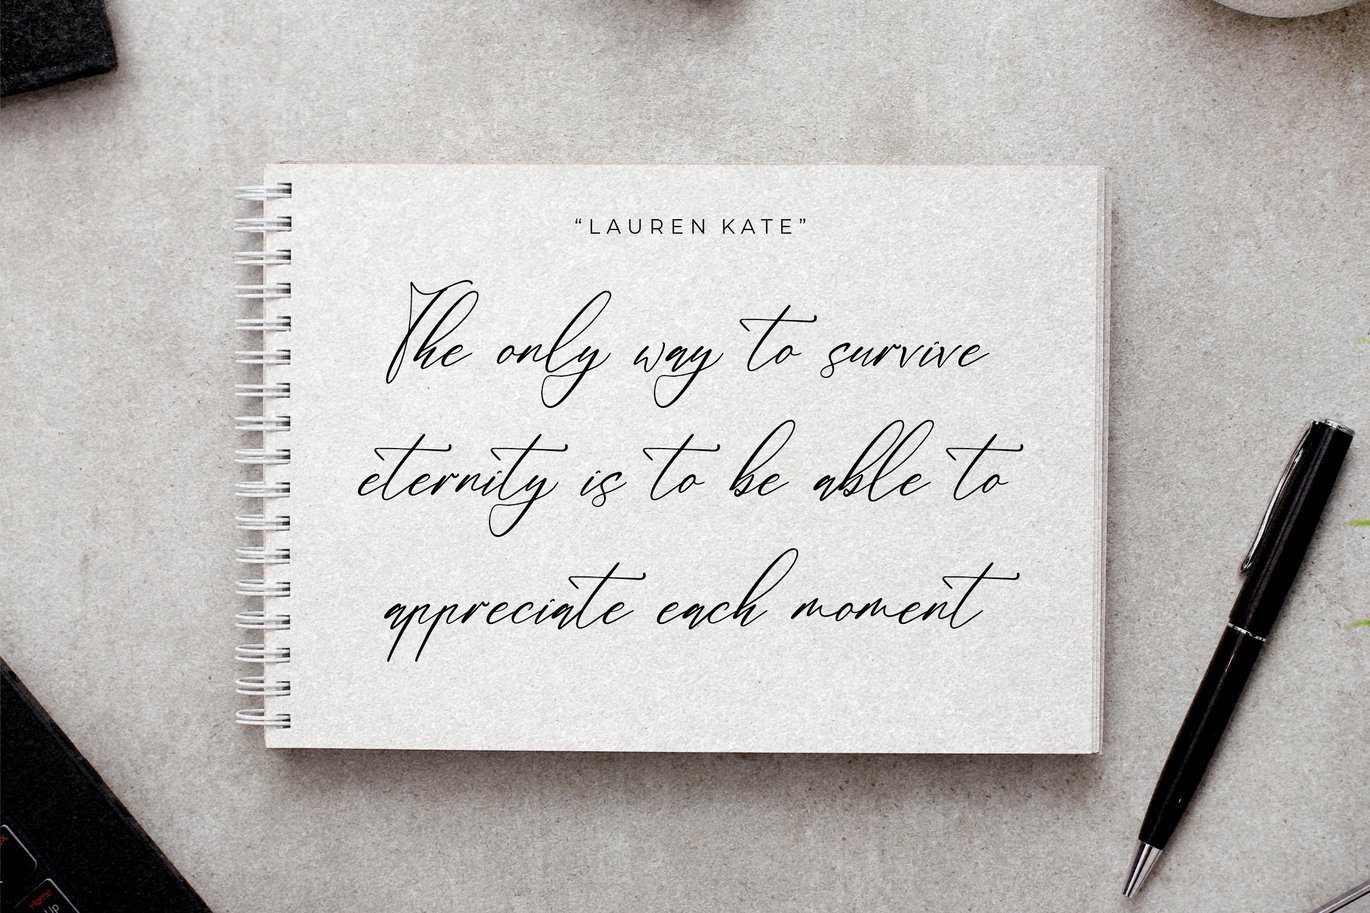 “LAUREN KATE”
The only way to survive
eternity is to be able to
appreciate each moment
Home
Up